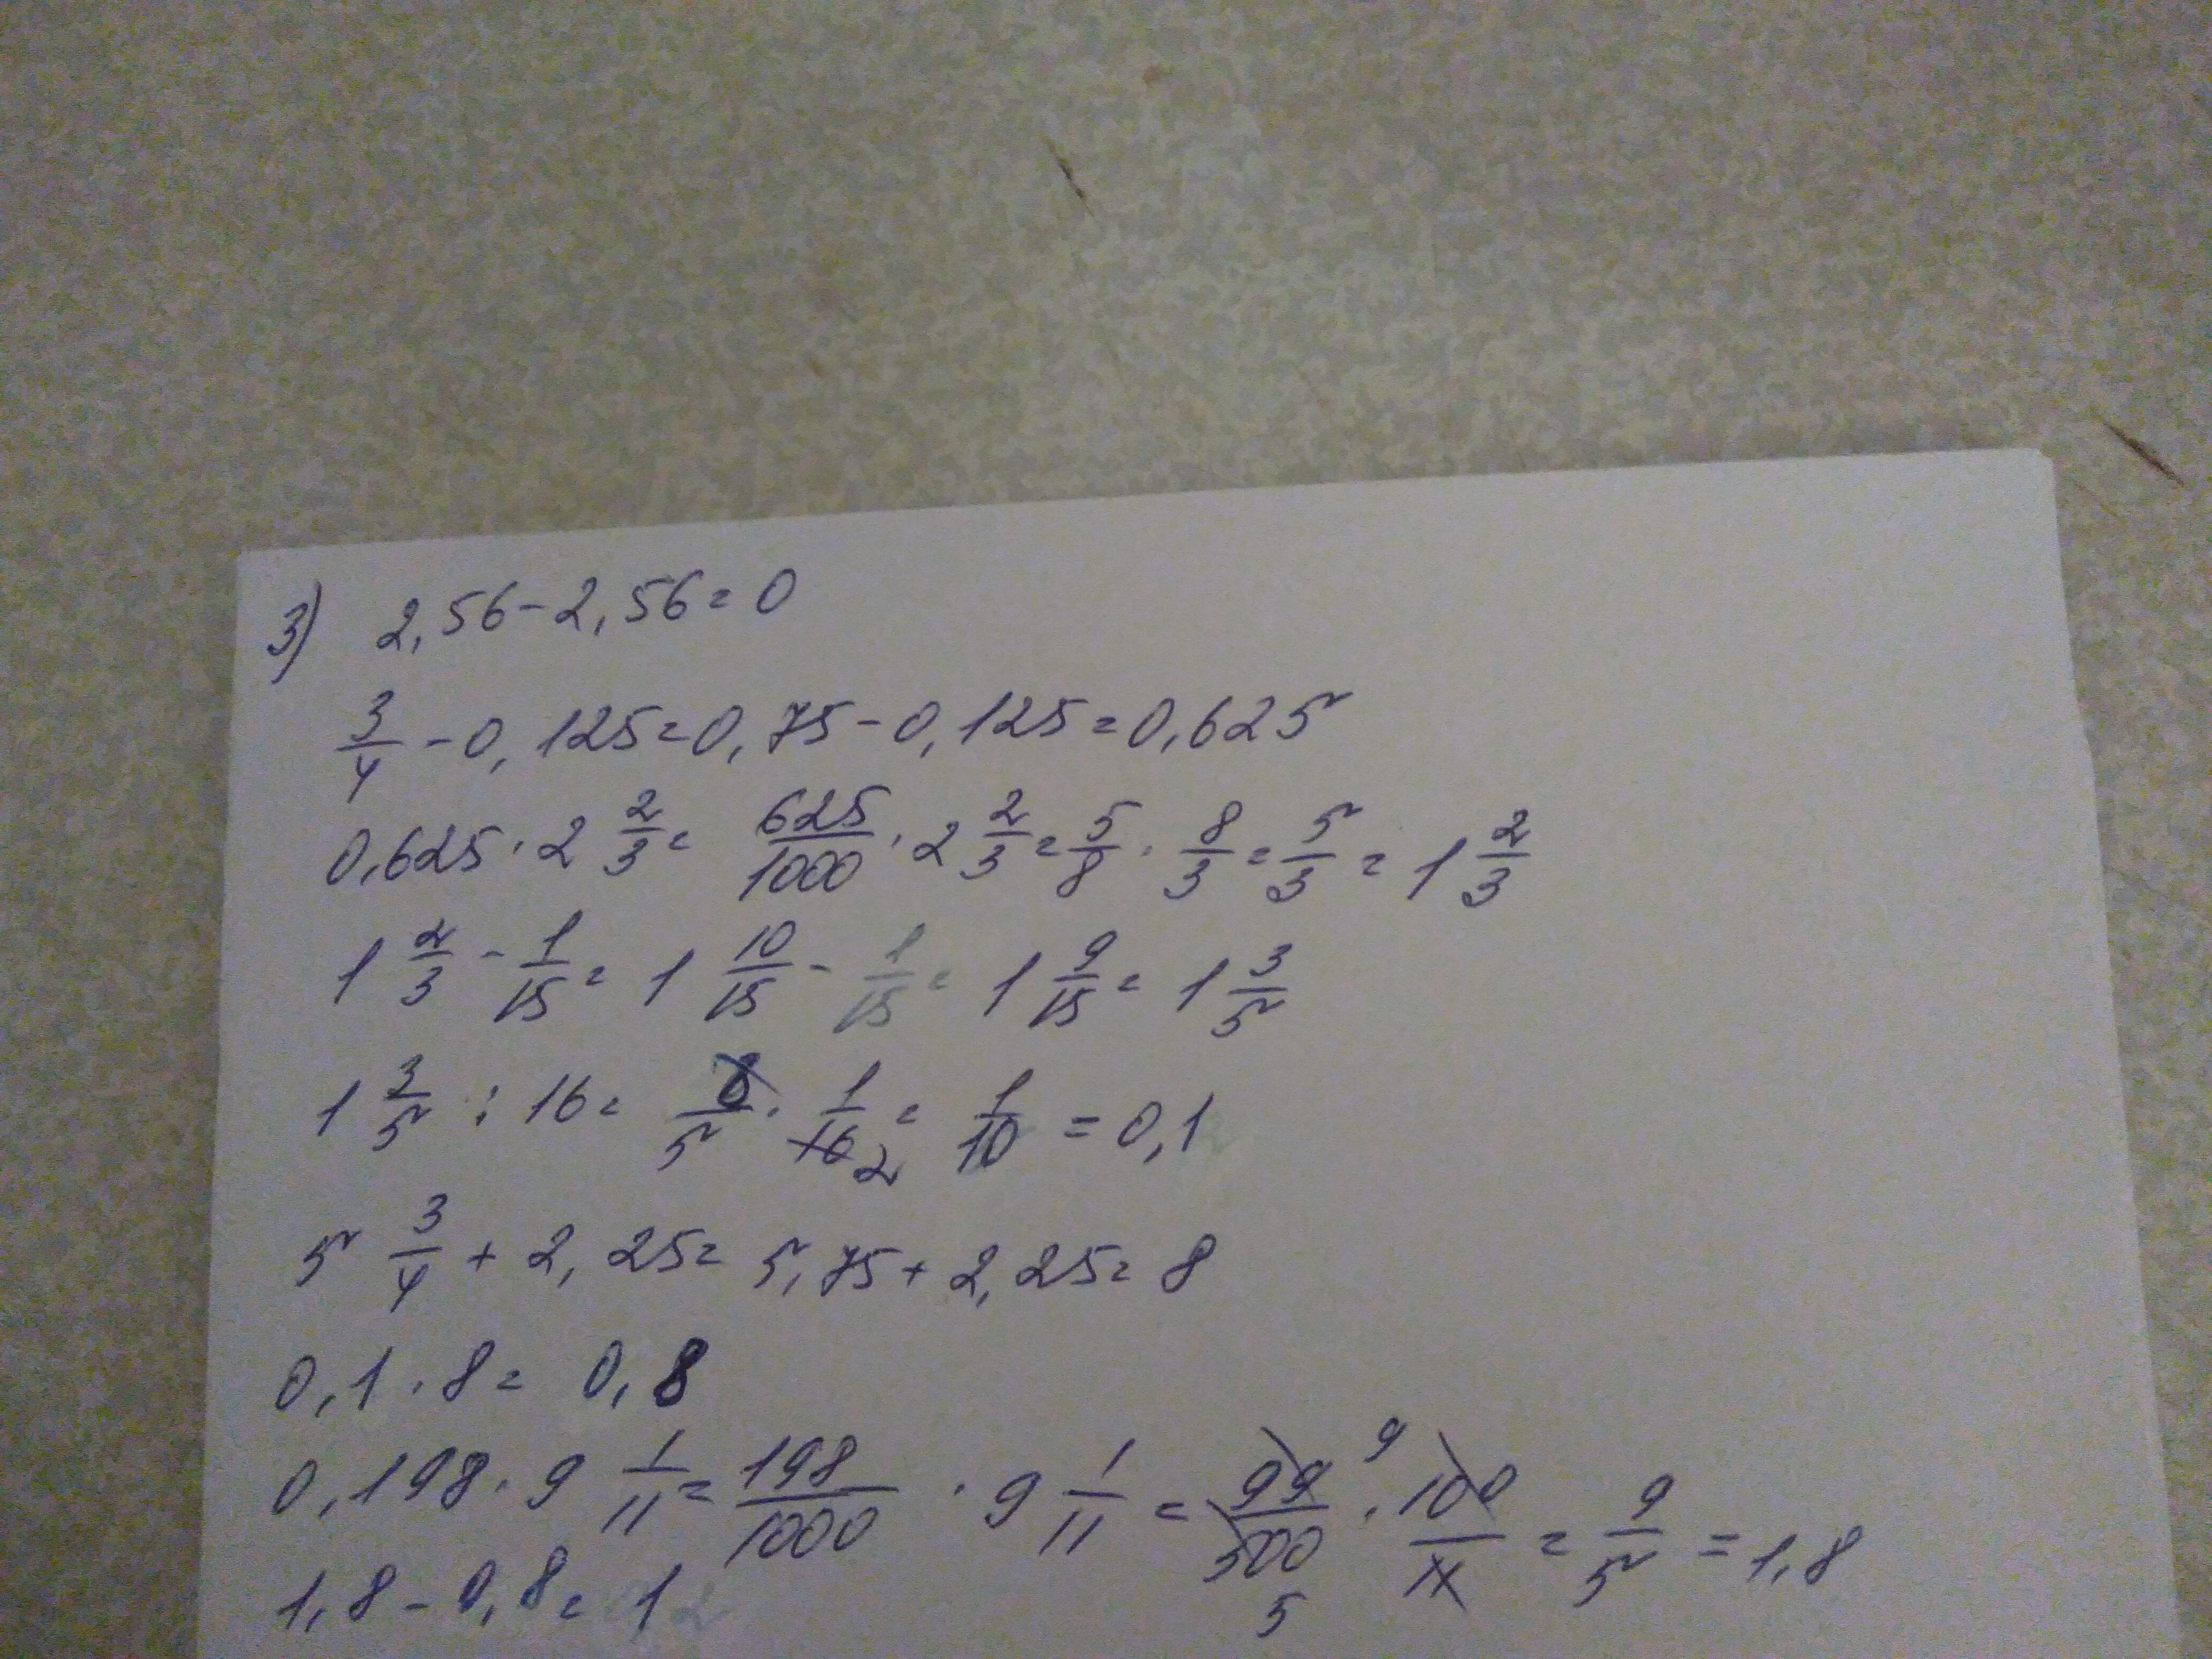 3) 2,56-2,56=0
3/4 - 0,125=0,75-0,125=0,625
0,625·2 2/3 = 625/1000 · 2 2/3 = 5/8 · 8/3 = 5/3 = 1 2/3
1 2/3 - 1/15 = 1 10/15 - 1/15 = 1 9/15 = 1 3/5
1 3/5 : 16 = 8/5 · 1/16 2 = 1/10 = 0,1
5 3/4 + 2,25 = 5,75 + 2,25 = 8
0,1·8 = 0,8
0,198·9 1/11 = 198/1000 · 9 1/11 = 99/500 9 5 · 100/11 = 9/5 = 1,8
1,8-0,8 = 1